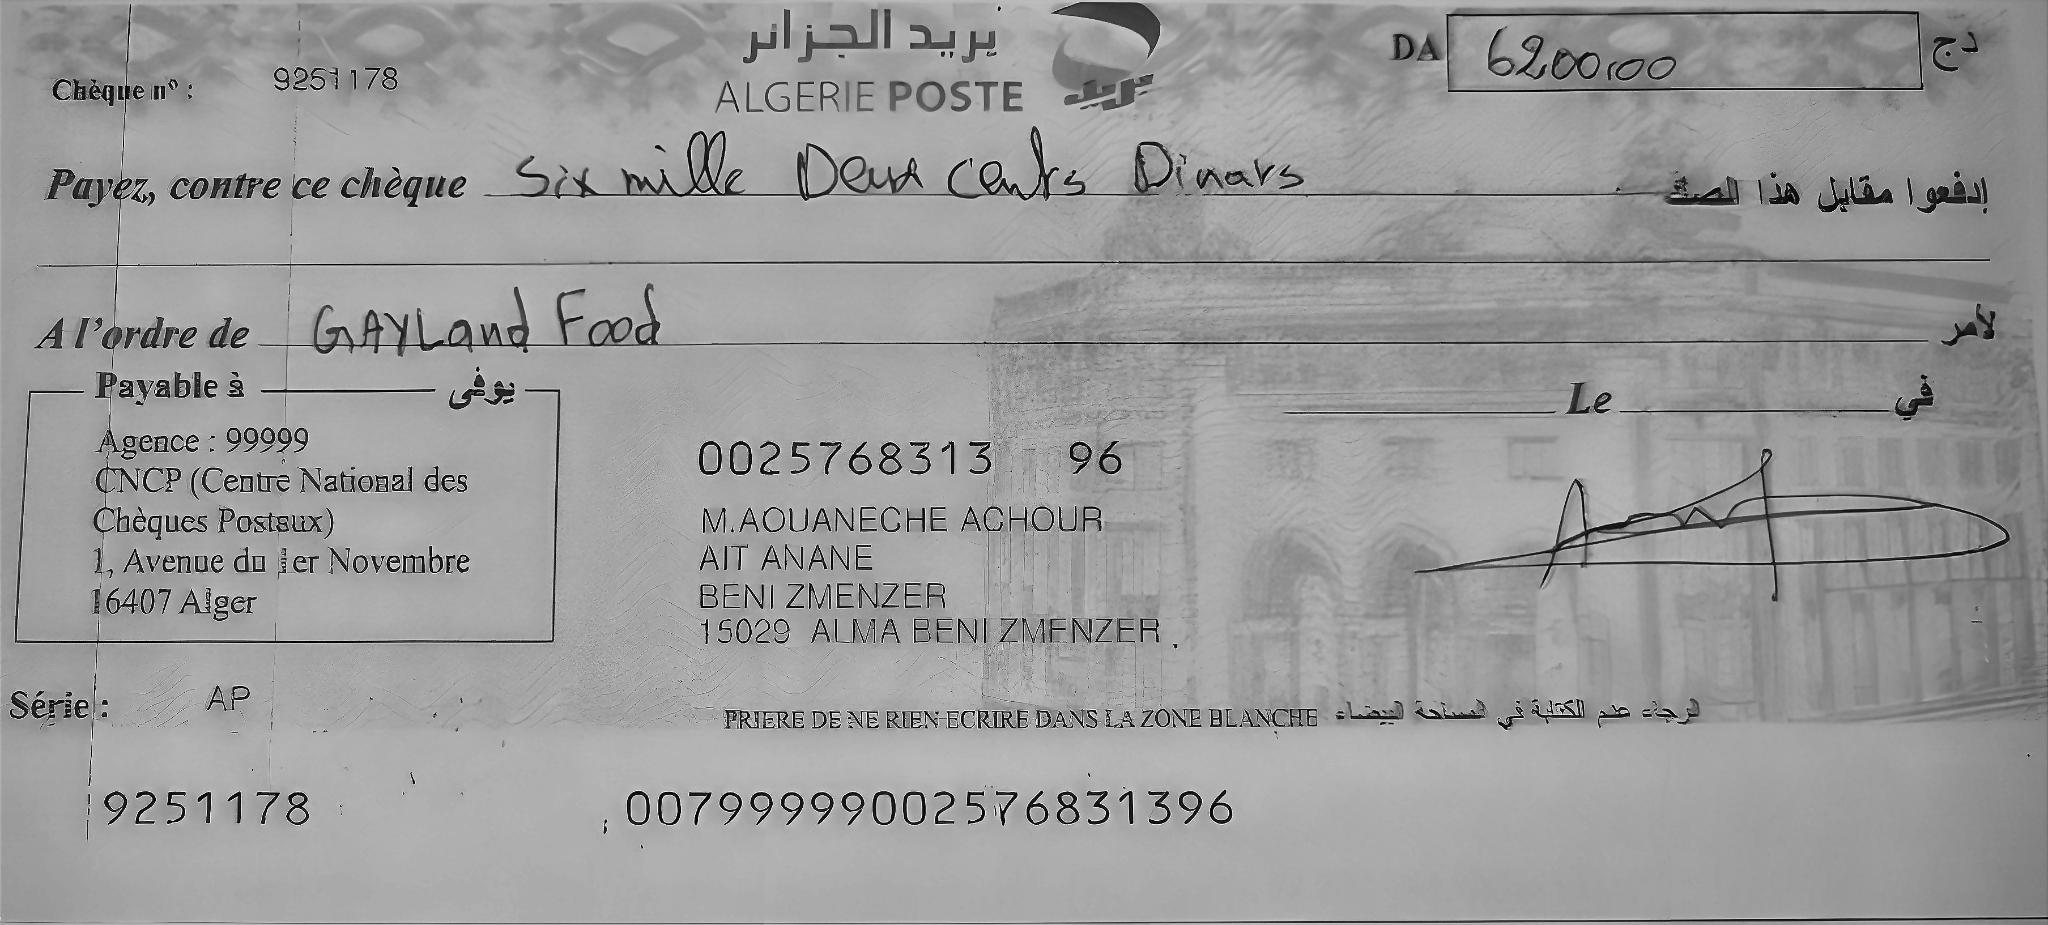 بريد الجزائر
ALGERIE POSTE
بريد
DA 6200,00 دج
Chèque n° : 9251178
Payez, contre ce chèque Six mille Deux cents Dinars إدفعوا مقابل هذا الصك
A l'ordre de GAYLand Food لأمر
Payable à يوفى
Agence : 99999
CNCP (Centre National des
Chèques Postaux)
1, Avenue du 1er Novembre
16407 Alger
Le في
0025768313 96
M.AOUANECHE ACHOUR
AIT ANANE
BENI ZMENZER
15029 ALMA BENI ZMENZER
Série : AP
PRIERE DE NE RIEN ECRIRE DANS LA ZONE BLANCHE الرجاء عدم الكتابة في المساحة البيضاء
9251178 00799999002576831396